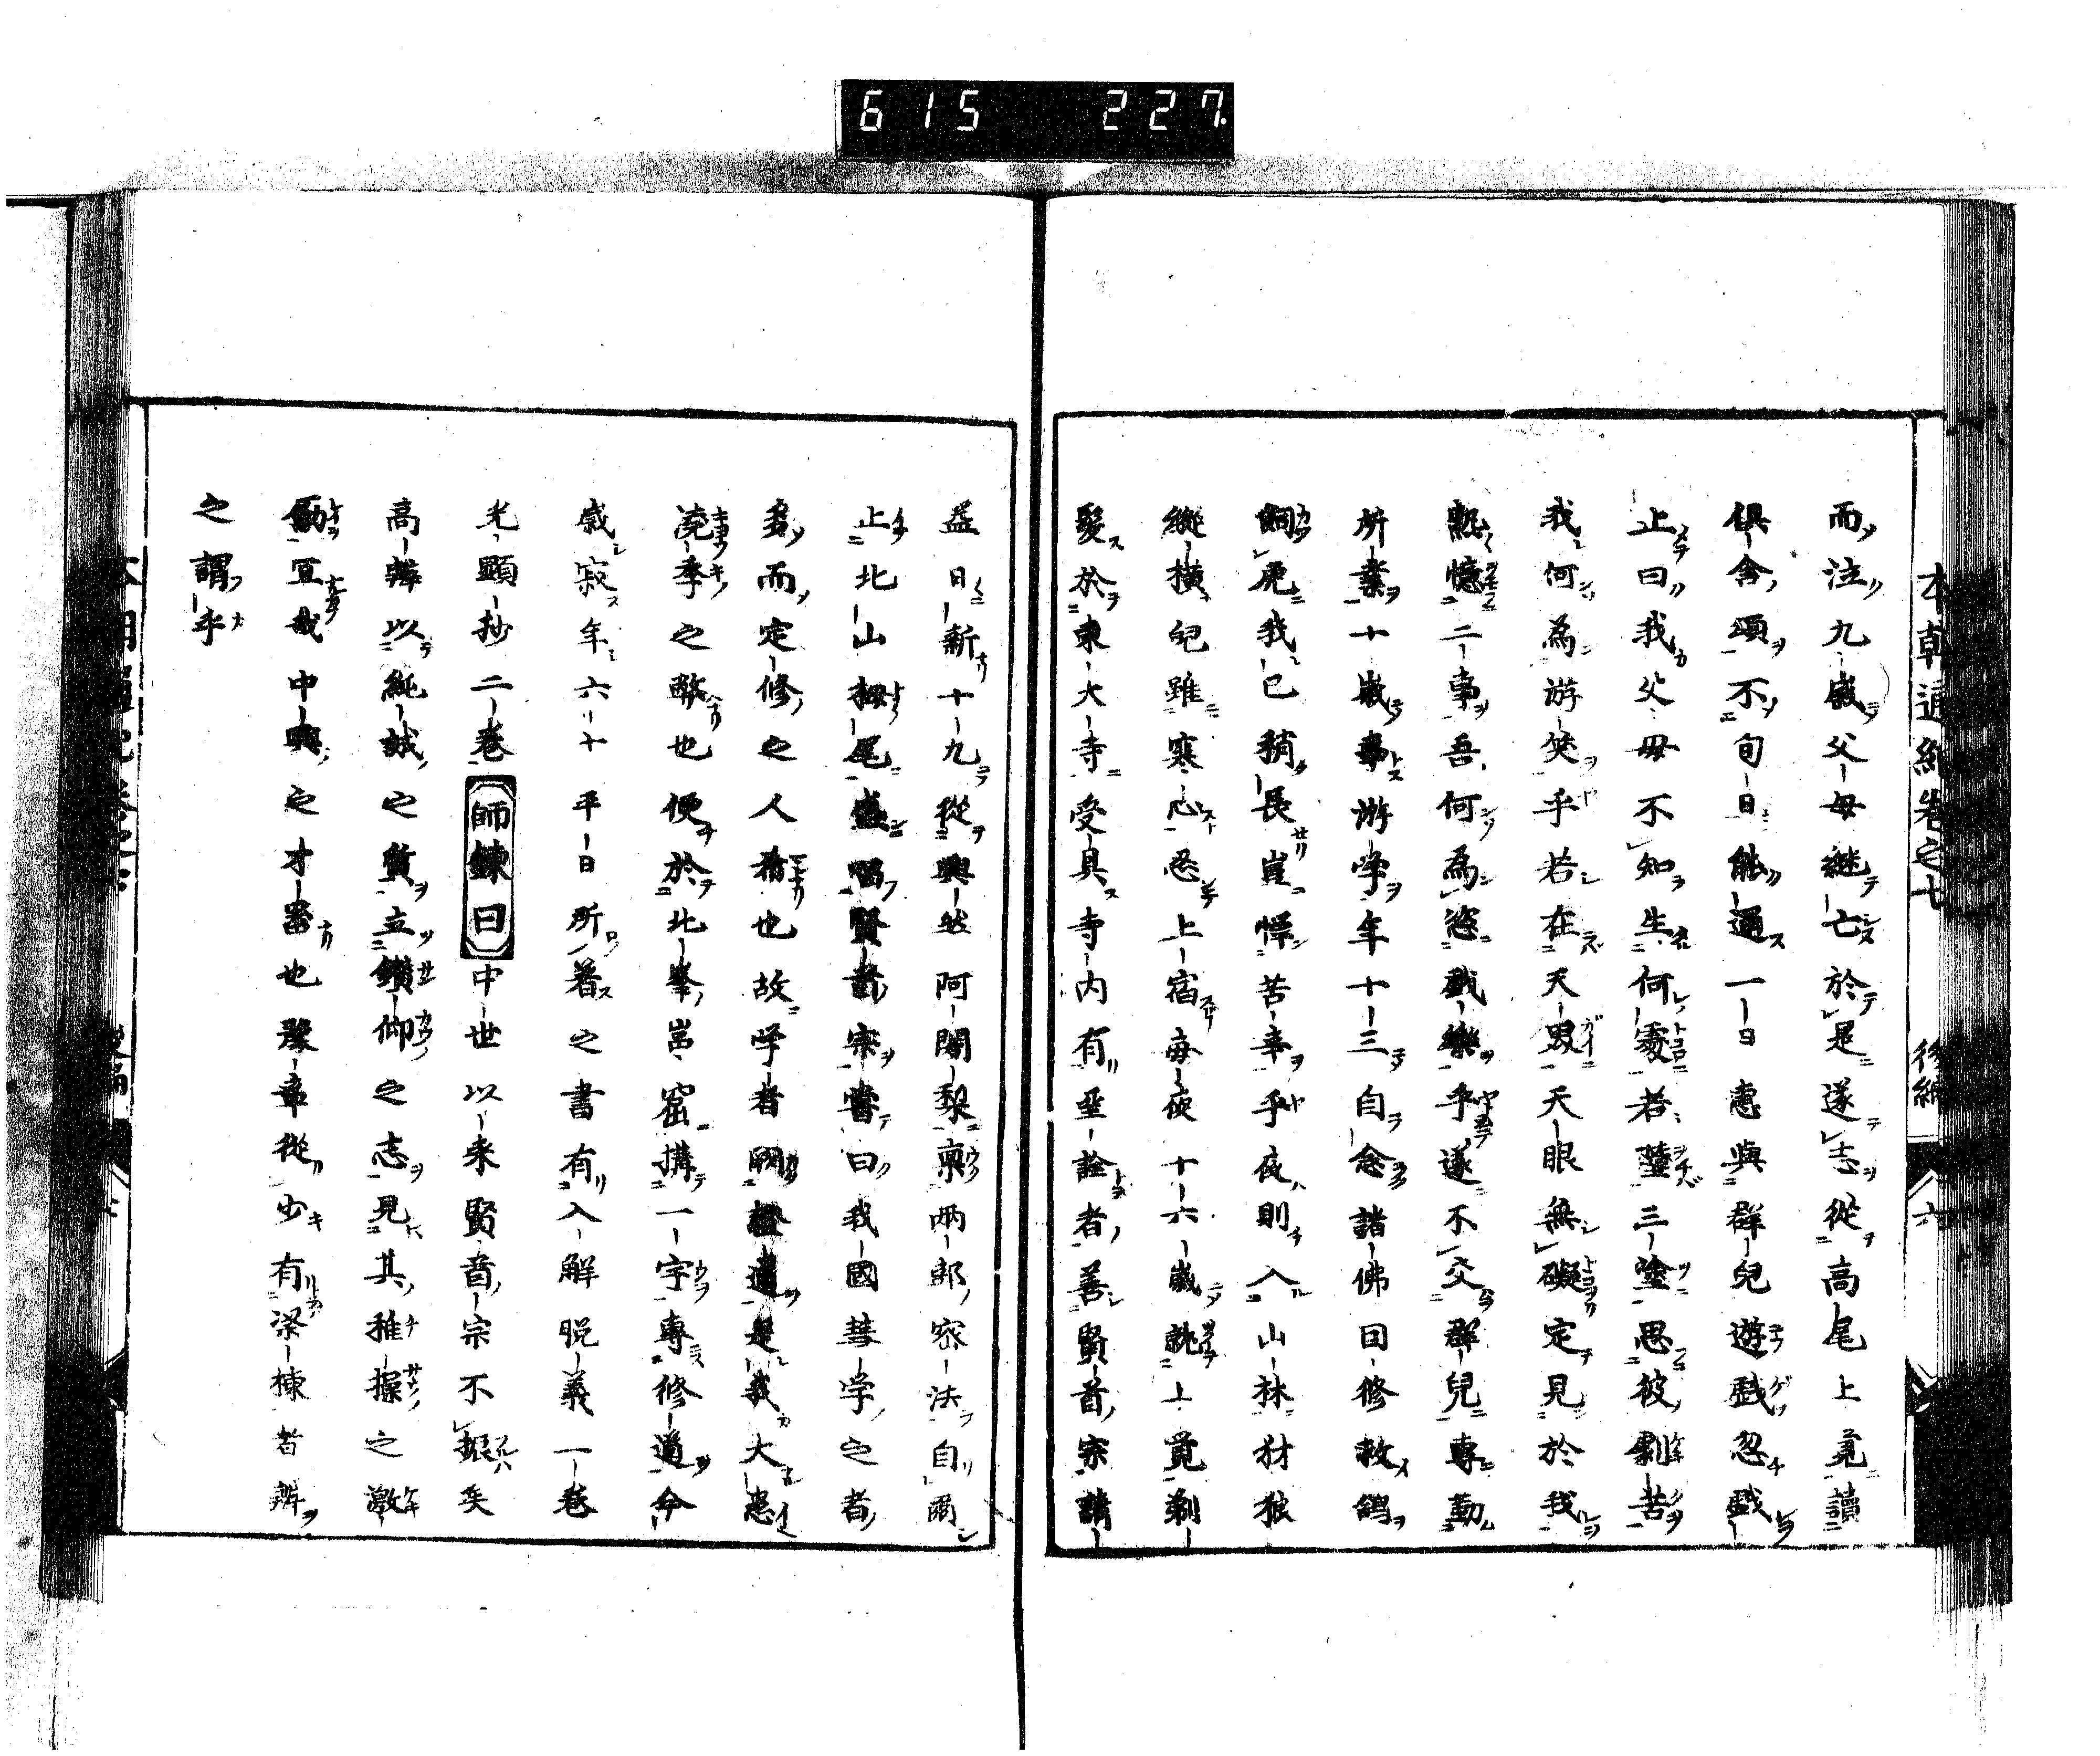 615 227.
本朝通紀卷之七 後編 六
而泣九歳父母継亡於是遂志從高尾上覚讀
倶舎頌不旬日能通一日憲與群兒遊戯忽戯
止曰我父母不知生何處若墮三塗思彼劇苦
我何為游笑乎若在天眼天眼無礙定見於我
熟憶二事吾何為恣戯樂乎遂不交群兒專勤
所業十歳事游学年十三自念諸佛因修救鴿
飼虎我已稍長豈憚苦辛乎夜則入山林豺狼
縦横兒雖寒心忍上宿毎夜十六歳就上覚剃
髮於東大寺受具寺内有聖詮者善賢首宗講
益日新十九從興然阿闍梨稟兩部密法自爾
止北山栂尾盛唱賢首宗嘗曰我國彗学之者
多而定修之人希也故学者罔證道是我大患
澆季之弊也便於北峯岩窟構一宇專修道今
歳寂年六十平日所著之書有入解脱義一卷
光顕抄二卷師錬曰中世以来賢首宗不振矣
高辨以純誠之質立鑽仰之志見其稚操之激
勵宜哉中興之才器也豫章從少有梁棟者辨
之謂乎